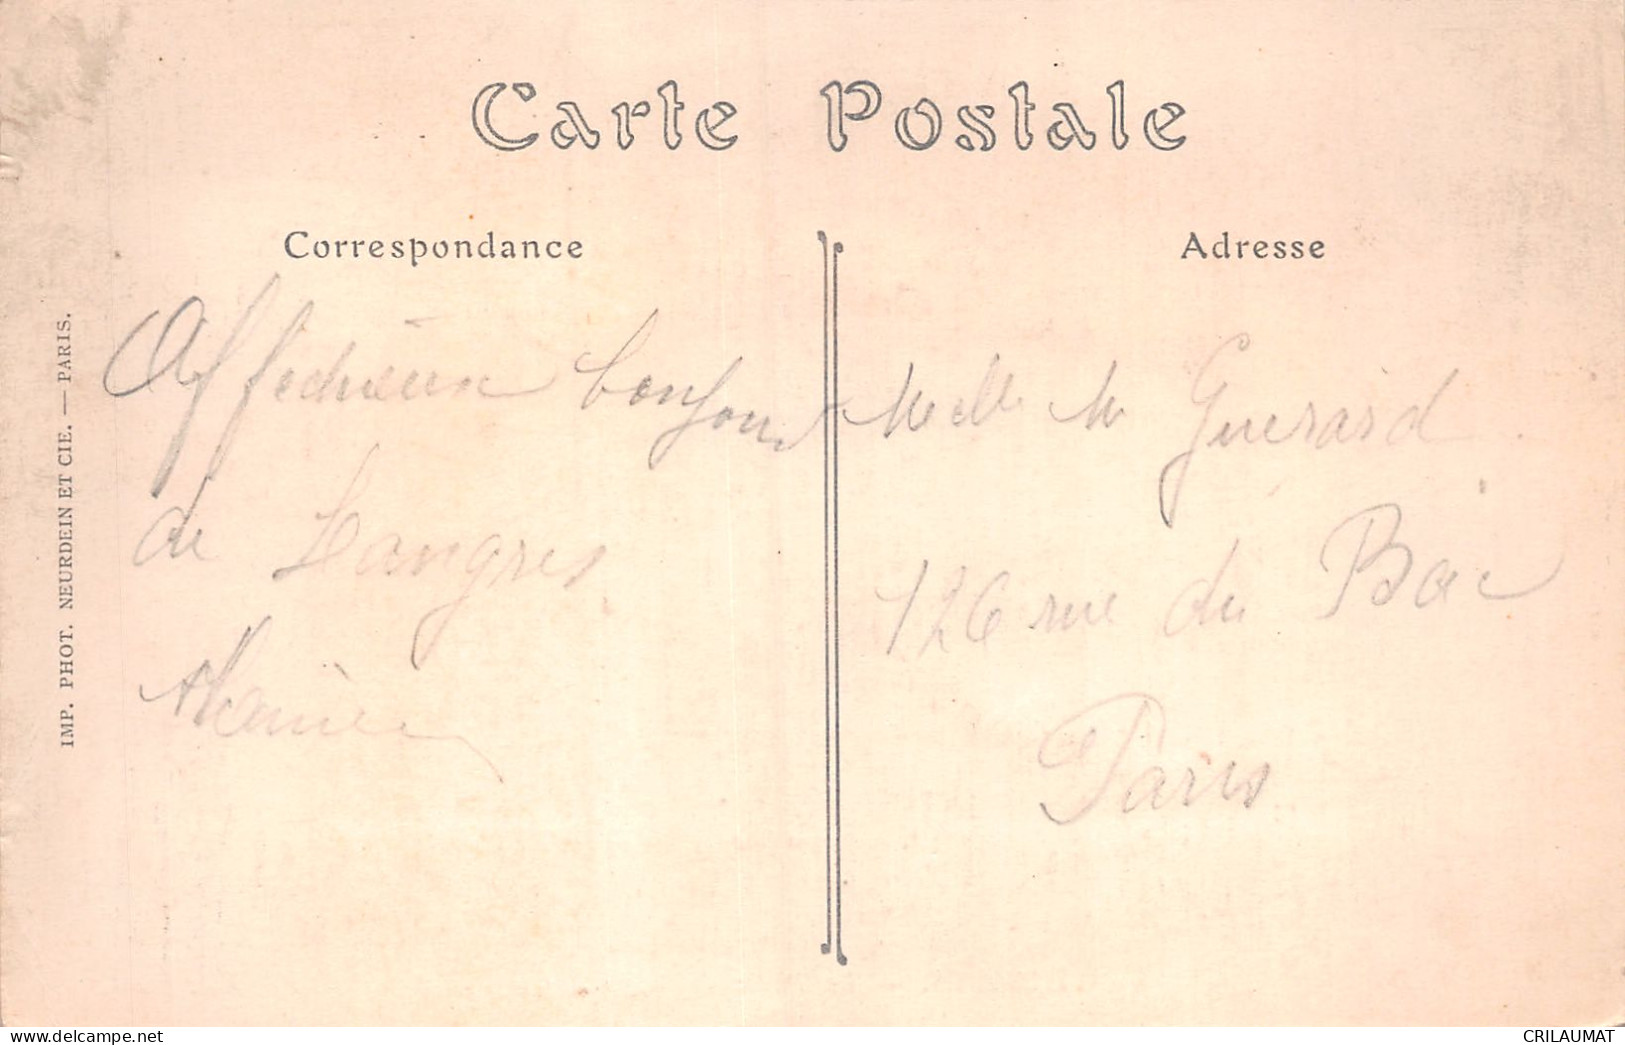 Carte Postale
Correspondance
Affectueux bonjour
de Langres
Adresse
Melle M Guerard
126 rue du Bac
Paris
IMP. PHOT. NEURDEIN ET CIE. — PARIS.
www.delcampe.net
CRILAUMAT